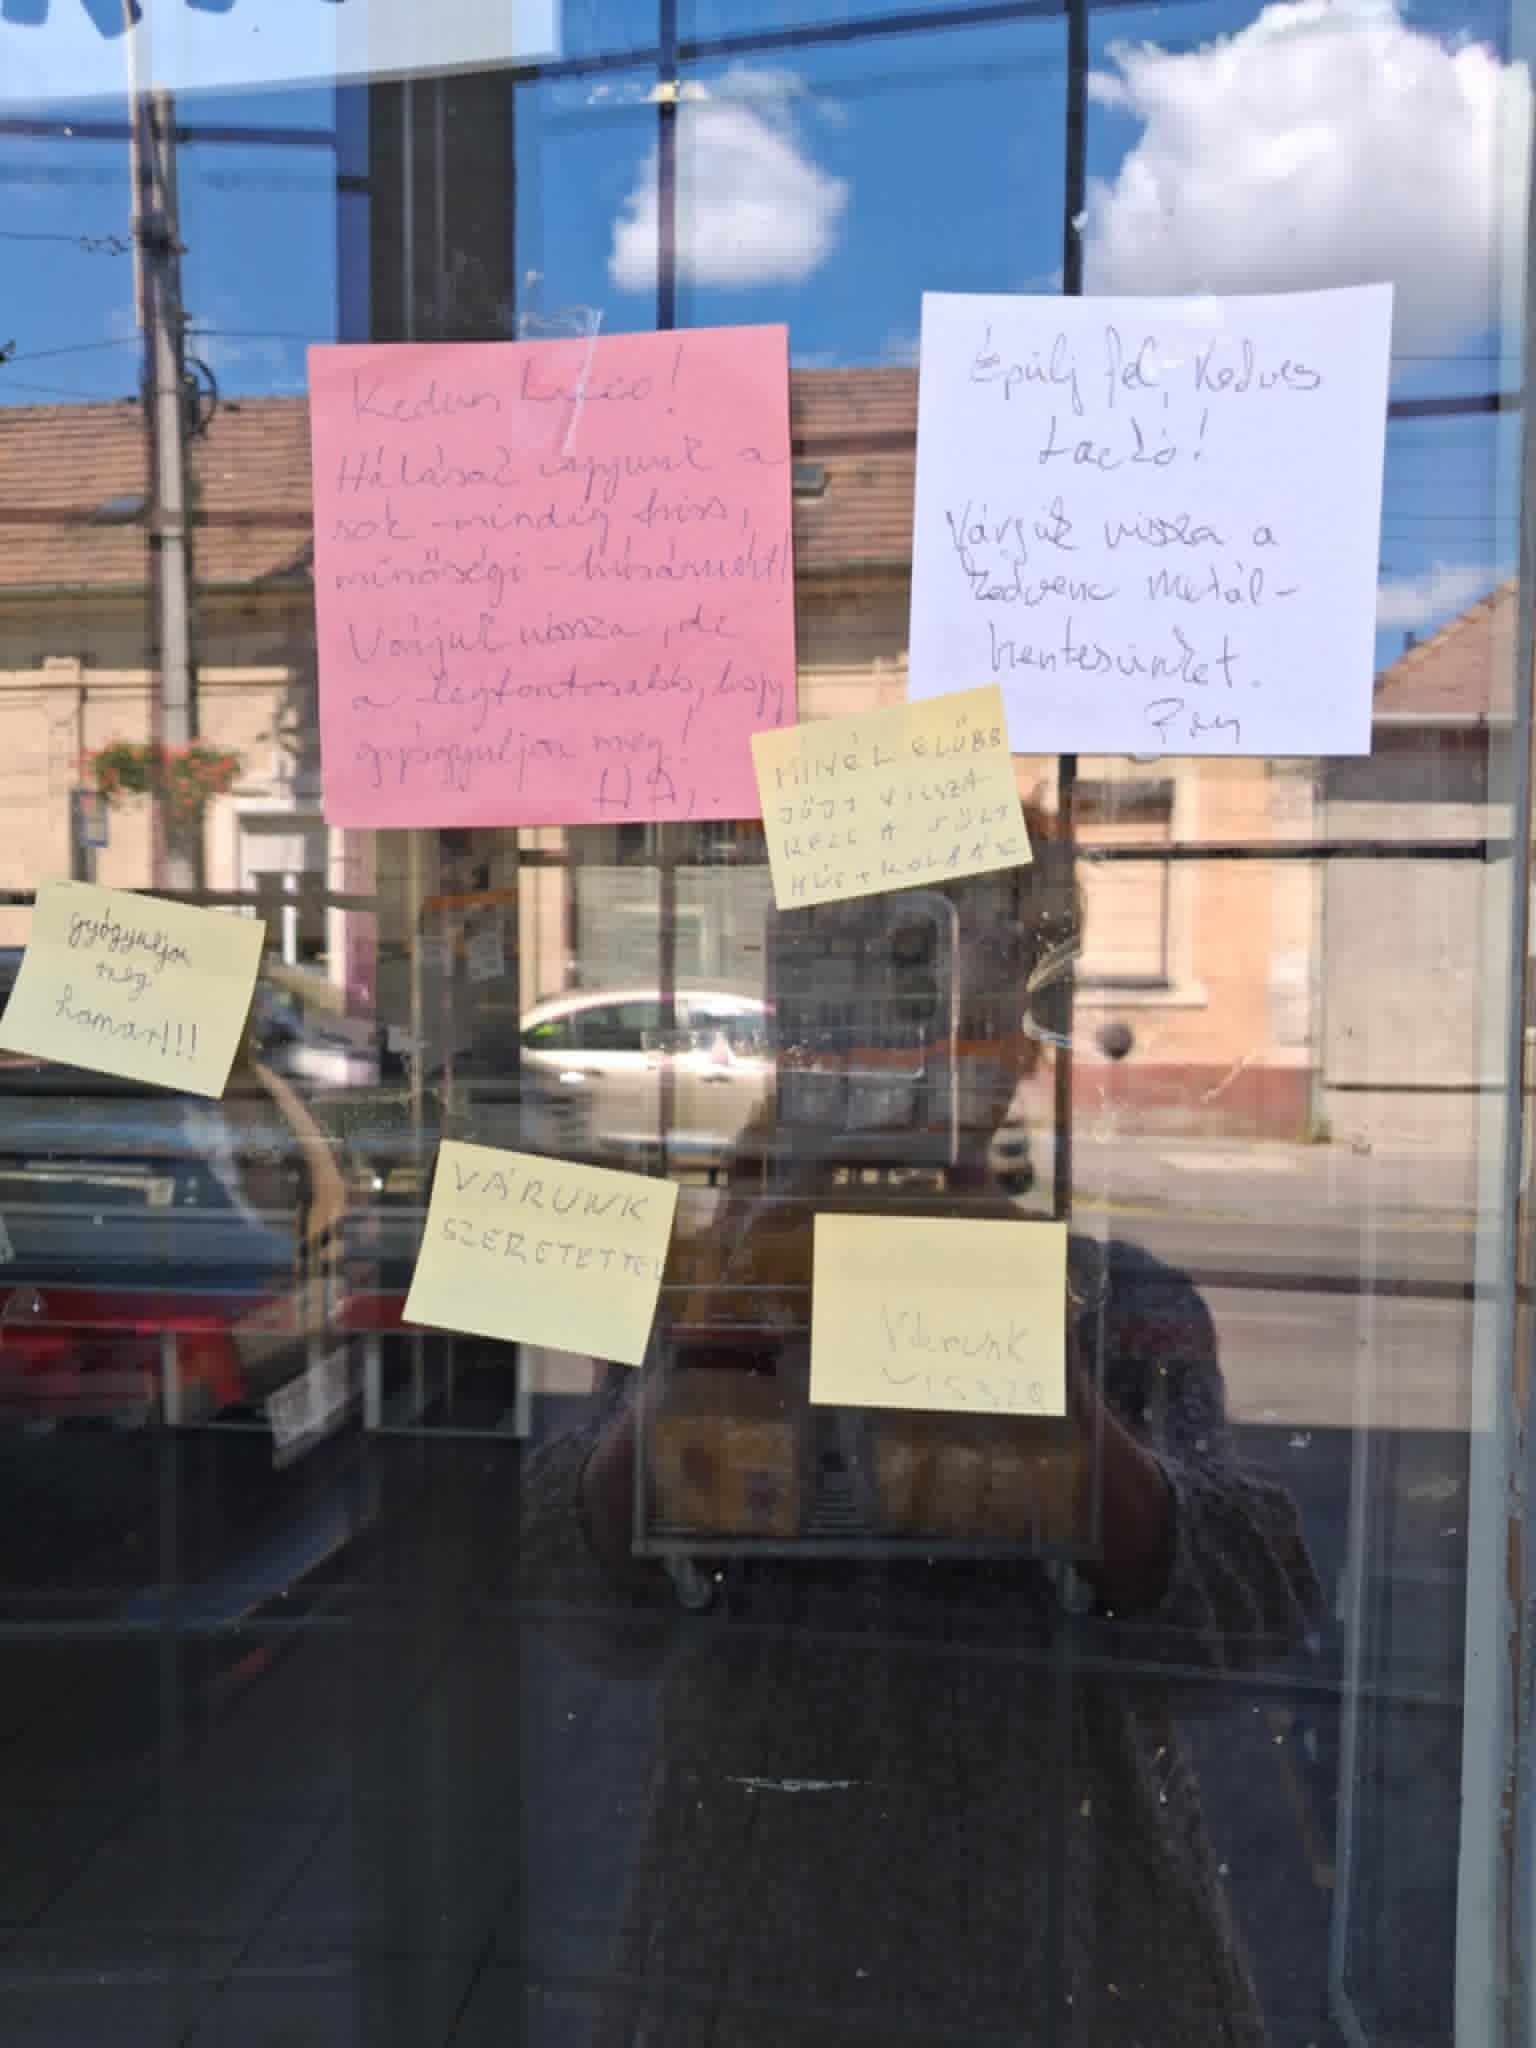 Kedves Lacó!
Hálásak vagyunk a
sok - mindig friss,
minőségi - húsáruért!
Várjuk vissza, de
a legfontosabb, hogy
gyógyuljon meg!
Épülj fel, Kedves
Lackó!
Várjuk vissza a
kedvenc Metál-
hentesünket.
MINÉL ELŐBB
JÖJJ VISSZA
KELL A SÜLT
HÚS + KOLBÁSZ
gyógyuljon
meg
hamar!!!
VÁRUNK
SZERETETTEL
Várunk
vissza